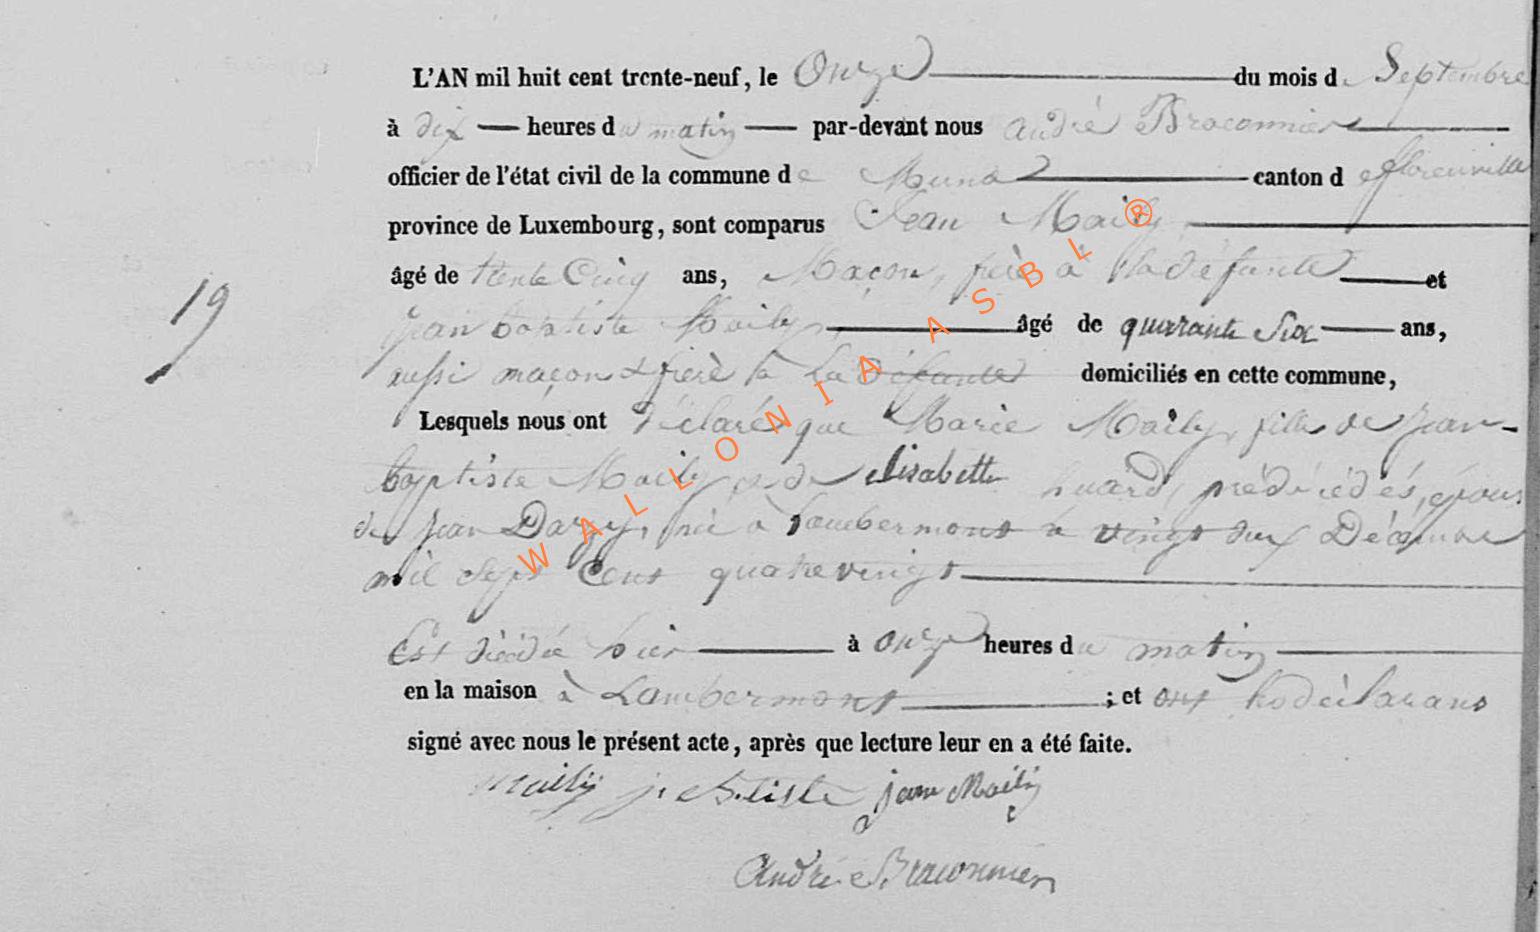 L'AN mil huit cent trente-neuf, le Onze du mois de Septembre
à dix heures du matin par-devant nous André Braconnier
officier de l'état civil de la commune de Muno canton de florenville
province de Luxembourg, sont comparus Jean Maily
âgé de trente Cinq ans, Maçon, frère à la défunte et
19
jean baptiste Maily âgé de quarante Six ans,
aussi maçon & frère à La Défunte domiciliés en cette commune,
Lesquels nous ont déclaré que Marie Maily, fille de jean
baptiste Maily & de elisabette huard, prédécédés, épouse
de jean Dazy, née à Lambermont le vingt deux Décembre
mil Sept Cent quatrevingt
Est décédé hier à onze heures du matin
en la maison à Lambermont ; et ont
signé avec nous le présent acte, après que lecture leur en a été faite.
Maily j. btiste jean Maily
André Braconnier
WALLONIA ASBL ®